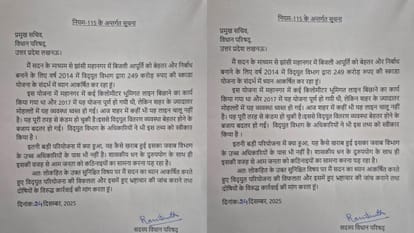 नियम-115 के अन्तर्गत सूचना
प्रमुख सचिव,
विधान परिषद्,
उत्तर प्रदेश लखनऊ।
मैं सदन के माध्यम से झांसी महानगर में बिजली आपूर्ति को बेहतर और निर्बाध
बनाने के लिए वर्ष 2014 में विद्युत विभाग द्वारा 249 करोड़ रुपए की स्काडा
योजना के संदर्भ में ध्यान आकर्षित कर रहा हूं।
इस योजना में महानगर में कई किलोमीटर भूमिगत लाइन बिछाने का कार्य
किया गया था और 2017 में यह योजना पूर्ण हो गयी थी, लेकिन शहर के ज्यादातर
मोहल्लों में यह व्यवस्था ध्वस्त हो गई। आज शहर में कहीं भी यह लाइन चालू नहीं
है। यह पूरी तरह से कंडम हो चुकी है।इससे विद्युत वितरण व्यवस्था बेहतर होने के
बजाय बदतर हो गई। विद्युत विभाग के अधिकारियों ने भी इस तथ्य को स्वीकार
किया है ।
इतनी बड़ी परियोजना में क्या हुआ, यह कैसे खराब हुई इसका जवाब विभाग
के उच्च अधिकारियों के पास भी नहीं है। शासकीय धन के दुरुपयोग के साथ ही
इसकी वजह से आम जनता को कठिनाइयों का सामना करना पड़ रहा है।
अतः लोकहित के उक्त सुनिश्चित विषय पर मैं सदन का ध्यान आकर्षित करते
हुए विद्युत परियोजना की विफलता और इसमें हुए भ्रष्टाचार की जांच कराने तथा
दोषियों के विरुद्ध कार्रवाई की मांग करता हूं।
दिनांक-24 दिसम्बर, 2025
सदस्य विधान परिषद्
नियम-115 के अन्तर्गत सूचना
प्रमुख सचिव,
विधान परिषद्,
उत्तर प्रदेश लखनऊ।
मैं सदन के माध्यम से झांसी महानगर में बिजली आपूर्ति को बेहतर और निर्बाध
बनाने के लिए वर्ष 2014 में विद्युत विभाग द्वारा 249 करोड़ रुपए की स्काडा
योजना के संदर्भ में ध्यान आकर्षित कर रहा हूं।
इस योजना में महानगर में कई किलोमीटर भूमिगत लाइन बिछाने का कार्य
किया गया था और 2017 में यह योजना पूर्ण हो गयी थी, लेकिन शहर के ज्यादातर
मोहल्लों में यह व्यवस्था ध्वस्त हो गई। आज शहर में कहीं भी यह लाइन चालू नहीं
है। यह पूरी तरह से कंडम हो चुकी है।इससे विद्युत वितरण व्यवस्था बेहतर होने के
बजाय बदतर हो गई। विद्युत विभाग के अधिकारियों ने भी इस तथ्य को स्वीकार
किया है ।
इतनी बड़ी परियोजना में क्या हुआ, यह कैसे खराब हुई इसका जवाब विभाग
के उच्च अधिकारियों के पास भी नहीं है। शासकीय धन के दुरुपयोग के साथ ही
इसकी वजह से आम जनता को कठिनाइयों का सामना करना पड़ रहा है।
अतः लोकहित के उक्त सुनिश्चित विषय पर मैं सदन का ध्यान आकर्षित करते
हुए विद्युत परियोजना की विफलता और इसमें हुए भ्रष्टाचार की जांच कराने तथा
दोषियों के विरुद्ध कार्रवाई की मांग करता हूं।
दिनांक-24 दिसम्बर, 2025
सदस्य विधान परिषद्